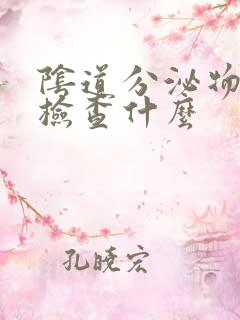 陰道分泌物
檢查什麼
孔曉宏